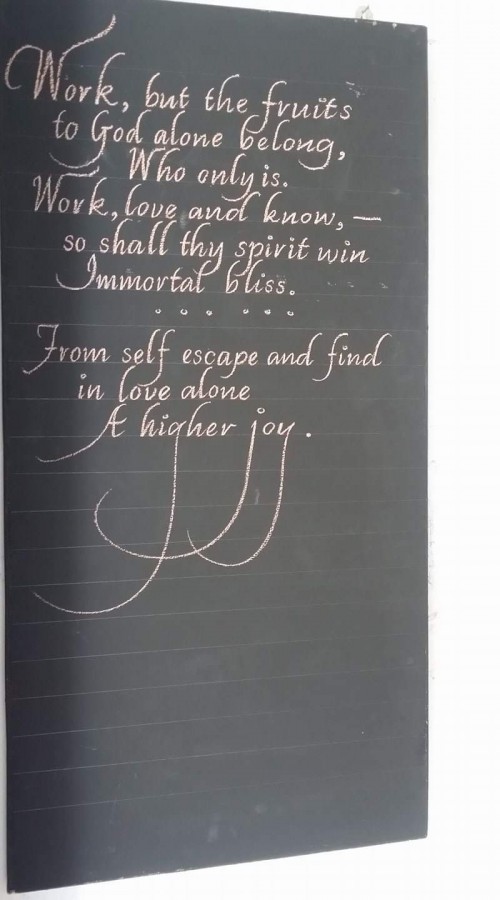 Work, but the fruits
to God alone belong,
Who only is.
Work, love and know, —
so shall thy spirit win
Immortal bliss.
. . . . . .
From self escape and find
in love alone
A higher joy.